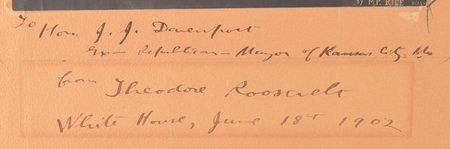 To Hon. J. J. Davenport
Ex-Republican-Mayor of Kansas City, Mo
from Theodore Roosevelt
White House, June 18th 1902